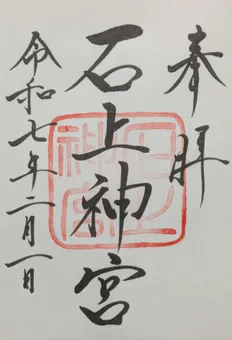 奉拝
石上神宮
令和七年二月一日
石上
神宮